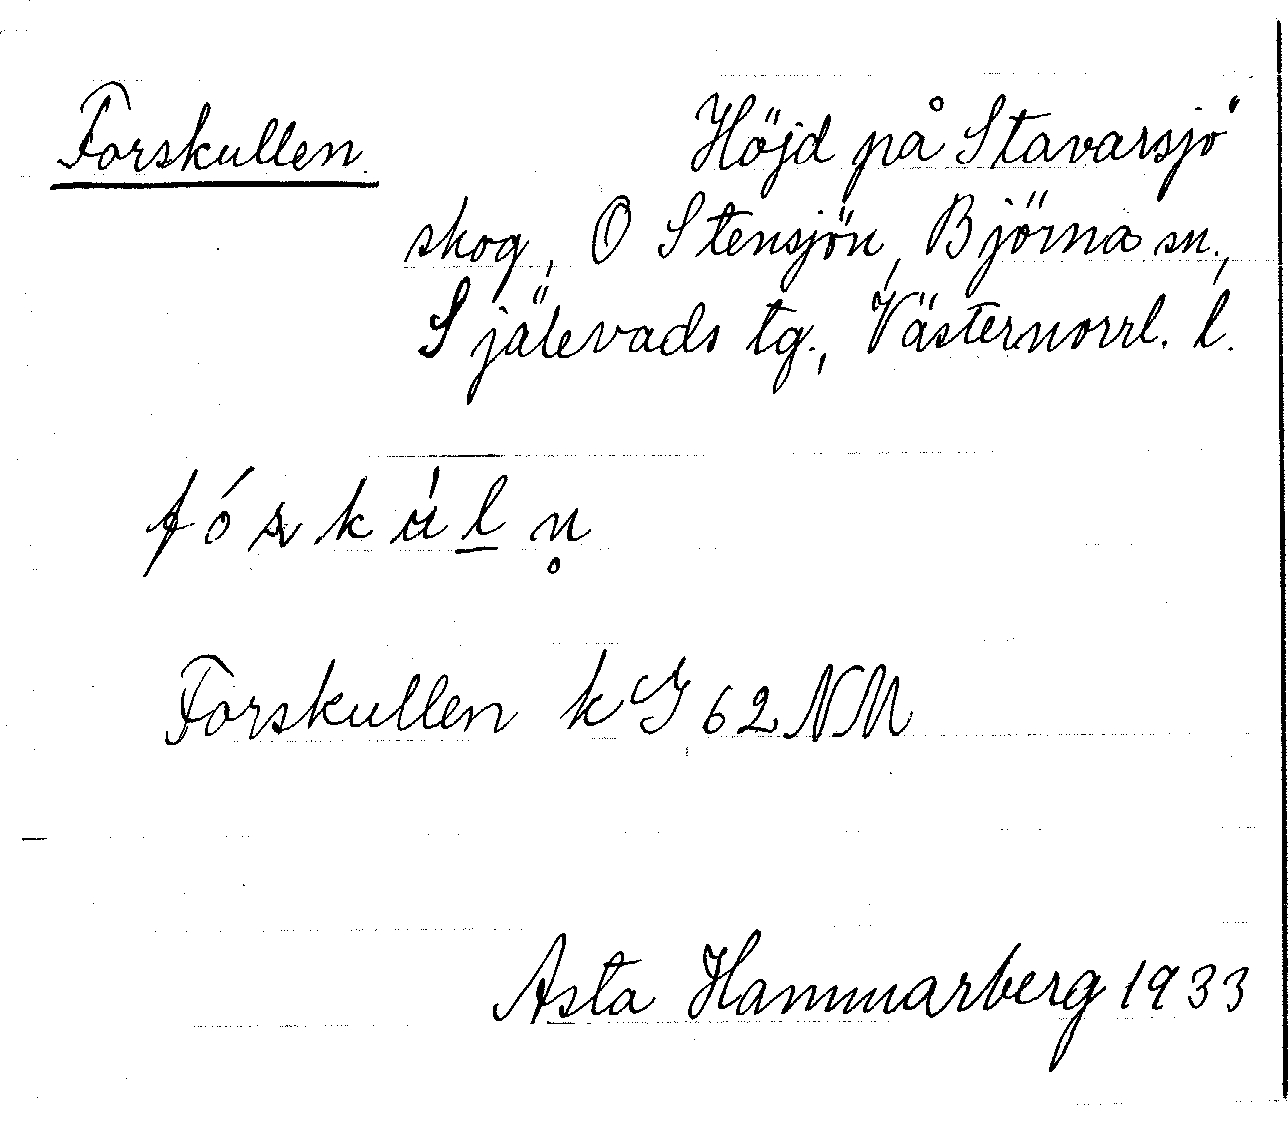 Forskullen. Höjd på Stavarsjö
skog, O Stensjön, Björna sn.,
Själevads tg., Västernorrl. l.
Forskullen kG 62 NM
Asta Hammarberg 1933